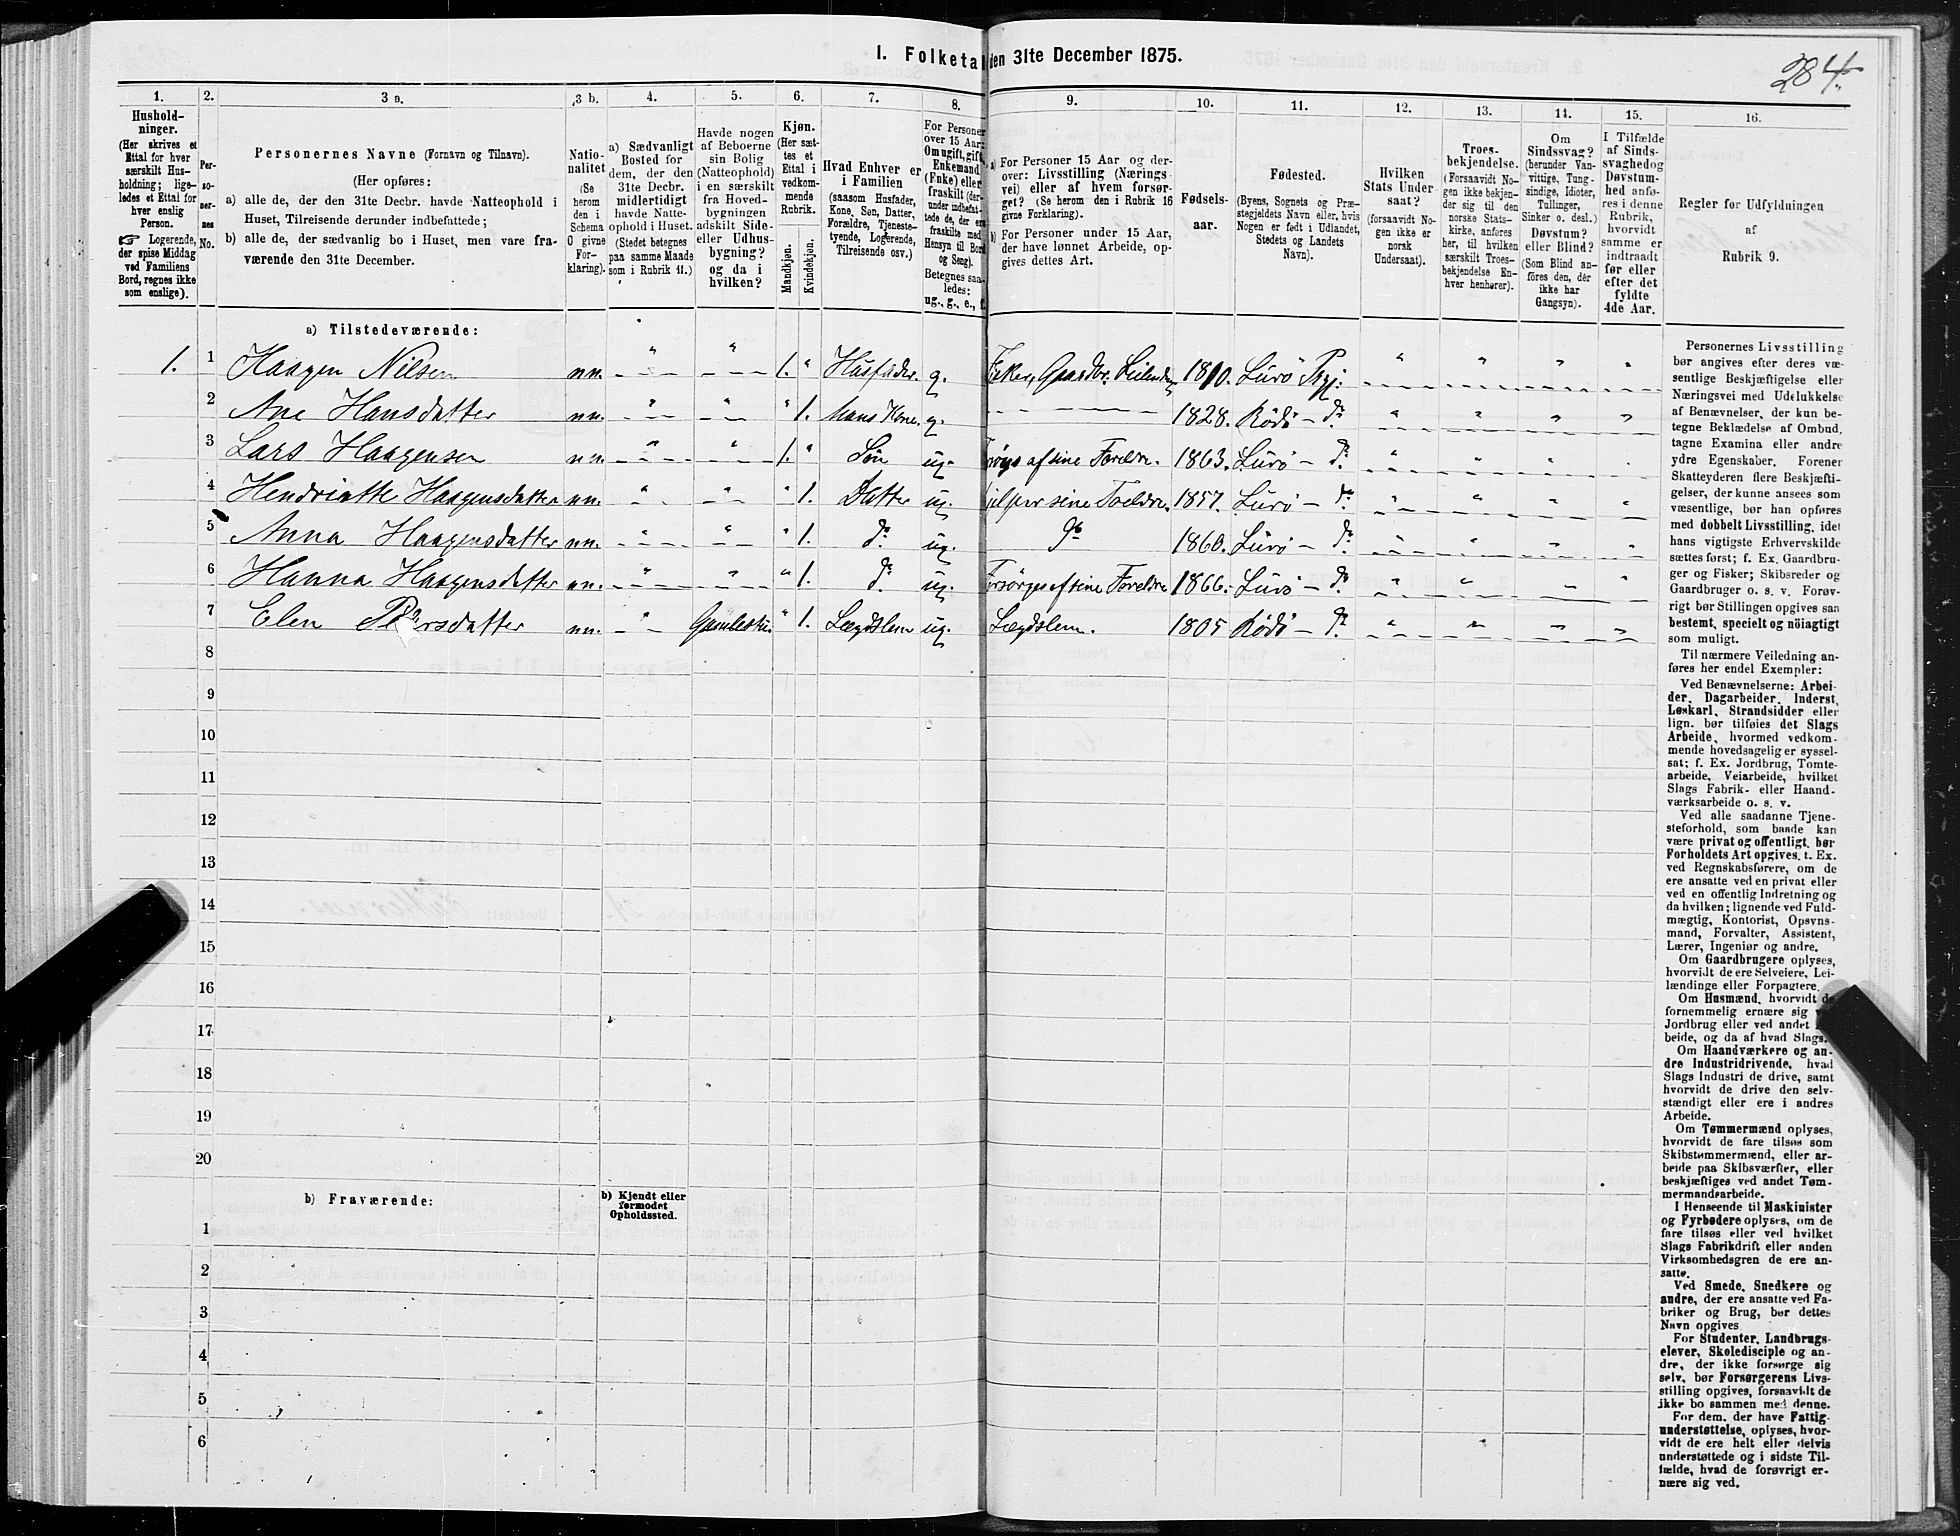 I. Folketal den 31te December 1875.
284.
1. 2. 3 a. 3 b. 4. 5. 6. 7. 8. 9. 10. 11. 12. 13. 14. 15. 16.
Hushold-
ninger.
(Her skrives et
Ettal for hver
særskilt Hus-
holdning; lige-
ledes et Ettal for
hver enslig
Person.
☞ Logerende,
der spise Middag
ved Familiens
Bord, regnes ikke
som enslige).
Per-
so-
ner-
nes
No.
Personernes Navne (Fornavn og Tilnavn).
(Her opføres:
a) alle de, der den 31te Decbr. havde Natteophold i
Huset, Tilreisende derunder indbefattede;
b) alle de, der sædvanlig bo i Huset, men vare fra-
værende den 31te December.
Natio-
nalitet
(Se
herom
den i
Schema
O givne
For-
klaring).
a) Sædvanligt
Bosted for
dem, der den
31te Decbr.
midlertidigt
havde Natte-
ophold i Huset.
(Stedet betegnes
paa samme Maade
som i Rubrik 11.)
Havde nogen
af Beboerne
sin Bolig
(Natteophold)
i en særskilt
fra Hoved-
bygningen
adskilt Side-
eller Udhus-
bygning?
og da i
hvilken?
Kjøn.
(Her sæt-
tes et
Ettal i
vedkom-
mende
Rubrik.
Mandkjøn.
Kvindekjøn.
Hvad Enhver er
i Familien
(saasom Husfader,
Kone, Søn, Datter,
Forældre, Tjeneste-
tyende, Logerende,
Tilreisende osv.)
For Personer
over 15 Aar:
Om ugift, gift,
Enkemand
(Enke) eller
fraskilt (der-
under indbefat-
tede de, der ere
fraskilte med
Hensyn til Bord
og Seng).
Betegnes saa-
ledes:
ug., g., e., f.
a) For Personer 15 Aar og der-
over: Livsstilling (Nærings-
vei) eller af hvem forsør-
get? (Se herom den i Rubrik 16
givne Forklaring).
b) For Personer under 15 Aar,
der have lønnet Arbeide, op-
gives dettes Art.
Fødsels-
aar.
Fødested.
(Byens, Sognets og Præ-
stegjeldets Navn eller, hvis
Nogen er født i Udlandet,
Stedets og Landets
Navn).
Hvilken
Stats Under-
saat?
(forsaavidt No-
gen ikke er
norsk
Undersaat).
Troes-
bekjendelse.
(Forsaavidt No-
gen ikke bekjen-
der sig til den
norske Stats-
kirke, anføres
her, til hvilken
særskilt Troes-
bekjendelse En-
hver henhører).
Om
Sindssvag?
(herunder Van-
vittige, Tung-
sindige, Idioter,
Tullinger,
Sinker o. desl.)
Døvstum?
eller Blind?
(Som Blind an-
føres den, der
ikke har
Gangsyn).
I Tilfælde
af Sinds-
svaghed og
Døvstum-
hed anfø-
res i denne
Rubrik,
hvorvidt
samme er
indtraadt
før eller
efter det
fyldte
4de Aar.
Regler for Udfyldningen
af
Rubrik 9.
a) Tilstedeværende:
1. 1 Haagen Nilsen nn. 1. Husfader. g. Fisker, Gaardbr. Leilending 1810. Lurö Prgj.
2 Ane Hansdatter nn. 1. hans Kone. g. 1828. Rödö – do
3 Lars Haagensen nn. 1. Søn ug. Forsørges af sine Foreldre. 1863. Lurö – do
4 Hendriatte Haagensdatter nn. 1. Datter ug. Hjelper sine Foreldre. 1857. Lurö – do
5 Anna Haagensdatter nn. 1. do ug. do 1860. Lurö – do
6 Hanna Haagensdatter nn. 1. do ug. Forsørges af sine Foreldre 1866. Lurö – do
7 Elen Pedersdatter nn. Gamlestu. 1. Lægdslem ug. Lægdslem. 1805 Rödö – do
8
9
10
11
12
13
14
15
16
17
18
19
20
b) Fraværende:
b) Kjendt eller
formodet
Opholdssted.
1
2
3
4
5
6
Personernes Livsstilling
bør angives efter deres væ-
sentlige Beskjæftigelse eller
Næringsvei med Udelukkelse
af Benævnelser, der kun be-
tegne Beklædelse af Ombud,
tagne Examina eller andre
ydre Egenskaber. Forener
Skatteyderen flere Beskjæfti-
gelser, der kunne ansees som
væsentlige, bør han opføres
med dobbelt Livsstilling, idet
hans vigtigste Erhvervskilde
sættes først; f. Ex. Gaardbru-
ger og Fisker; Skibsreder og
Gaardbruger o. s. v. Forøv-
rigt bør Stillingen opgives saa
bestemt, specielt og nöiagtigt
som muligt.
Til nærmere Veiledning an-
føres her endel Exempler:
Ved Benævnelserne: Arbei-
der, Dagarbeider, Inderst,
Løskarl, Strandsidder eller
lign. bør tilføies det Slags
Arbeide, hvormed vedkom-
mende hovedsagelig er syssel-
sat; f. Ex. Jordbrug, Tomte-
arbeide, Veiarbeide, hvilket
Slags Fabrik- eller Haand-
værksarbeide o. s. v.
Ved alle saadanne Tjene-
steforhold, som baade kan
være privat og offentligt, bør
Forholdets Art opgives, t. Ex.
ved Regnskabsførere, om de
ere ansatte ved en privat eller
ved en offentlig Indretning og
da hvilken; lignende ved Fuld-
mægtig, Kontorist, Opsyns-
mand, Forvalter, Assistent,
Lærer, Ingeniør og andre.
Om Gaardbrugere oplyses,
hvorvidt de ere Selveiere, Lei-
lændinge eller Forpagtere.
Om Husmænd, hvorvidt de
fornemmelig ernære sig
Jordbrug eller ved andet
beide, og da af hvad Slags.
Om Haandværkere og an-
dre Industridrivende, hvad
Slags Industri de drive, samt
hvorvidt de drive den selv-
stændigt eller ere i andres
Arbeide.
Om Tømmermænd oplyses,
hvorvidt de fare tilsøs som
Skibstømmermænd, eller ar-
beide paa Skibsværfter, eller
beskjæftiges ved andet Tøm-
mermandsarbeide.
I Henseende til Maskinister
og Fyrbødere oplyses, om de
fare tilsøs eller ved hvilket
Slags Fabrikdrift eller anden
Virksomhedsgren de ere an-
satte.
Ved Smede, Snedkere og
andre, der ere ansatte ved Fa-
briker og Brug, bør dettes
Navn opgives
For Studenter, Landbrugs-
elever, Skoledisciple og an-
dre, der ikke forsørge sig
selv, bør Forsørgerens Livs-
stilling opgives, forsaavidt de
ikke bo sammen med denne.
For dem, der have Fattig-
understøttelse, oplyses, hvor-
vidt de ere helt eller delvis
understøttede og i sidste Til-
fælde, hvad de forøvrigt er-
nære sig ved.